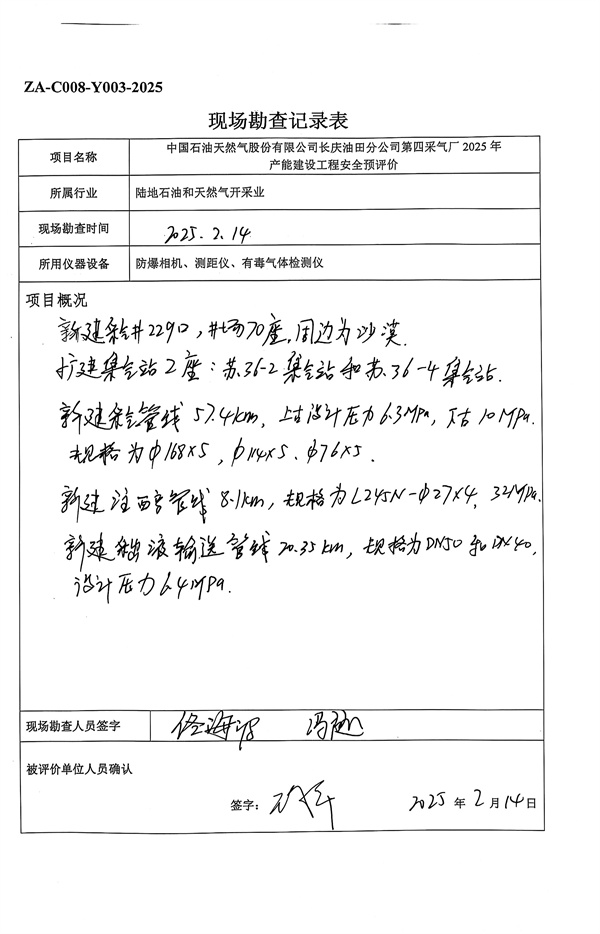 ZA-C008-Y003-2025
现场勘查记录表
项目名称
中国石油天然气股份有限公司长庆油田分公司第四采气厂 2025 年
产能建设工程安全预评价
所属行业
陆地石油和天然气开采业
现场勘查时间
2025.2.14
所用仪器设备
防爆相机、测距仪、有毒气体检测仪
项目概况
新建采气井229口,井场70座,周边为沙漠.
扩建集气站2座:苏36-2集气站和苏36-4集气站.
新建采气管线57.4km,上古设计压力6.3MPa,下古10MPa.
规格为φ168×5,φ114×5、φ76×5.
新建注醇管线8.1km,规格为L245N-φ27×4,32MPa.
新建采出液输送管线20.35km,规格为DN50和DN40,
设计压力6.4MPa.
现场勘查人员签字
冯
被评价单位人员确认
签字:
2025 年 2 月 14 日